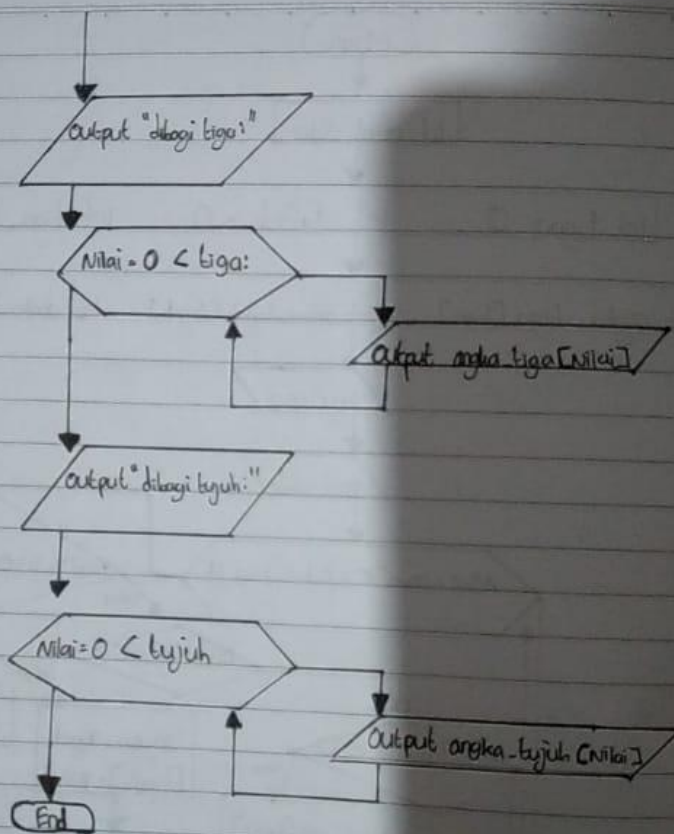 Output "dibagi tiga:"
Nilai = 0 < tiga:
Output angka_tiga [Nilai]
Output "dibagi tujuh:"
Nilai = 0 < tujuh
Output angka_tujuh [Nilai]
End